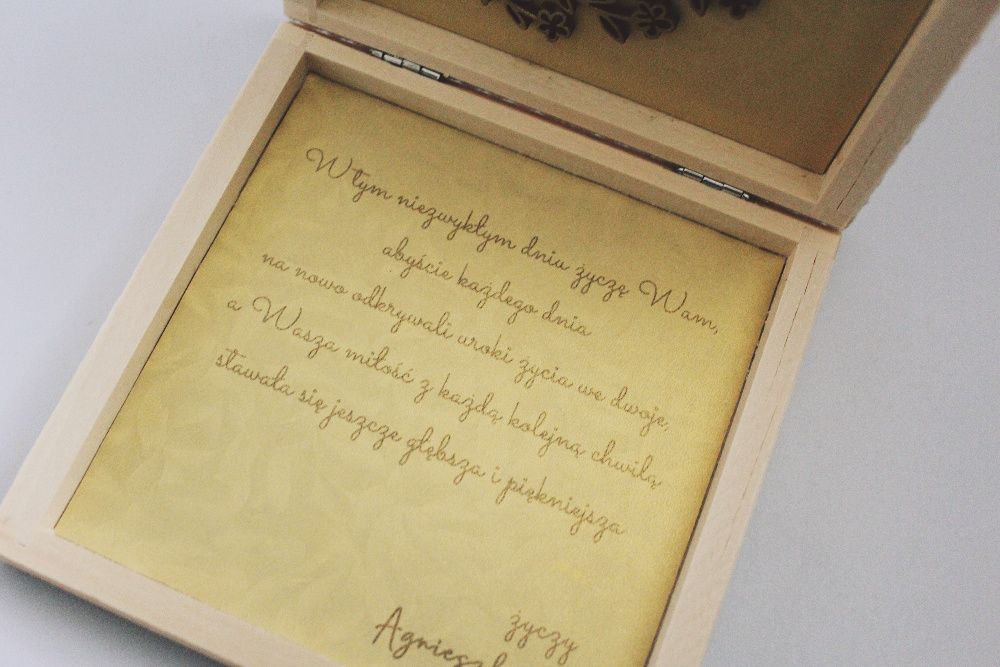 W tym niezwykłym dniu życzę Wam,
abyście każdego dnia
na nowo odkrywali uroki życia we dwoje,
a Wasza miłość z każdą kolejną chwilą
stawała się jeszcze głębsza i piękniejsza
życzy